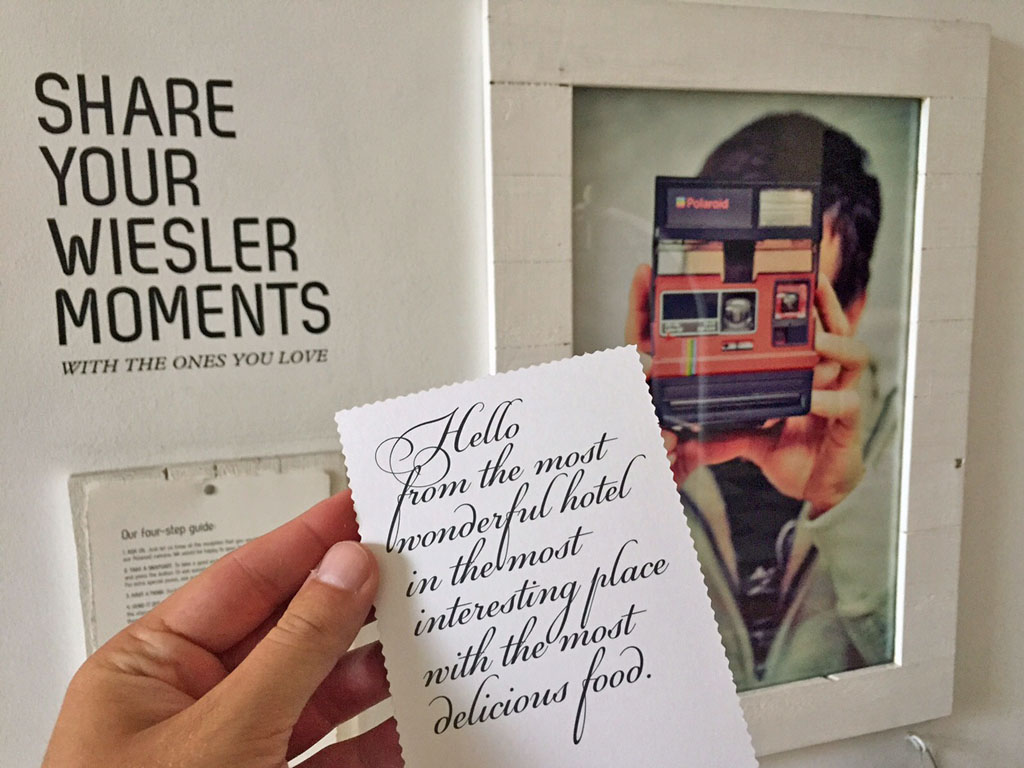 SHARE
YOUR
WIESLER
MOMENTS
WITH THE ONES YOU LOVE
Polaroid
Our four-step guide
1. ASK US.
2. TAKE A
3.
4.
Hello
from the most
wonderful hotel
in the most
interesting place
with the most
delicious food.